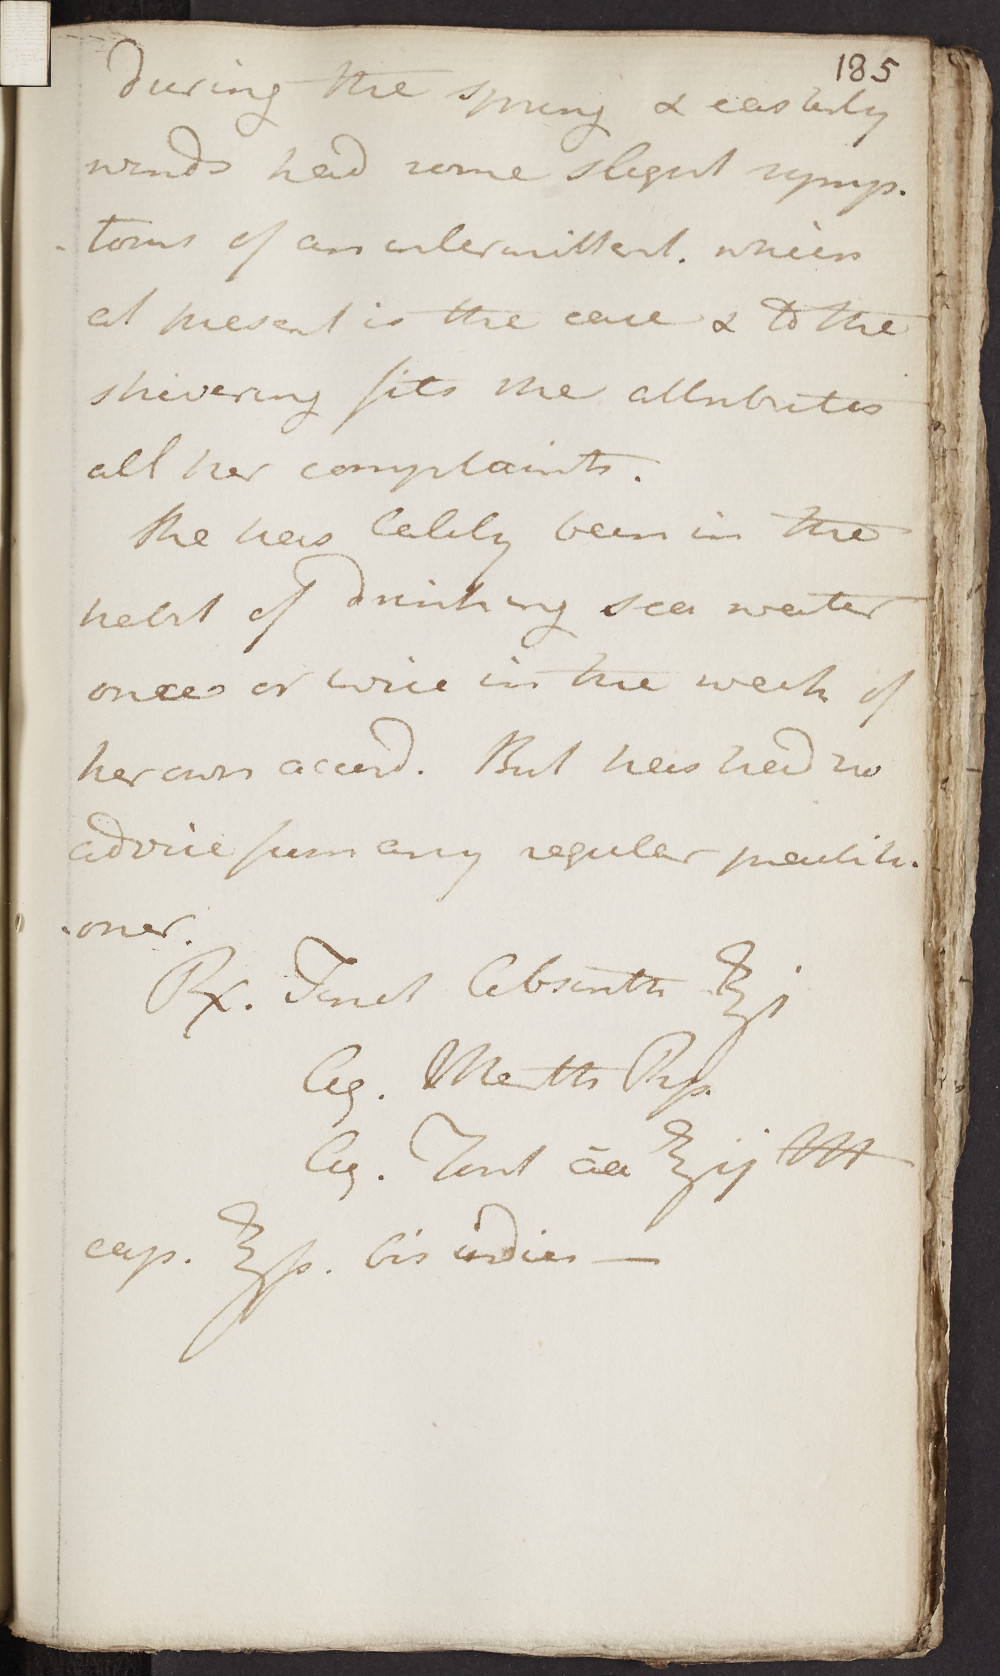 185
during the spring & easterly
winds had some slight symp-
-toms of an intermittent. which
at present is the case & to the
shivering fits she attributes
all her complaints.
She has lately been in the
habit of drinking sea water
once or twice in the week of
her own accord. But has had no
advice from any regular practiti-
-oner.
Rx. Tinct Absinth ℥j
Aq. Menth Pip.
Aq. Font āa ℥ij M
cap. ℥ſs. bis indies —